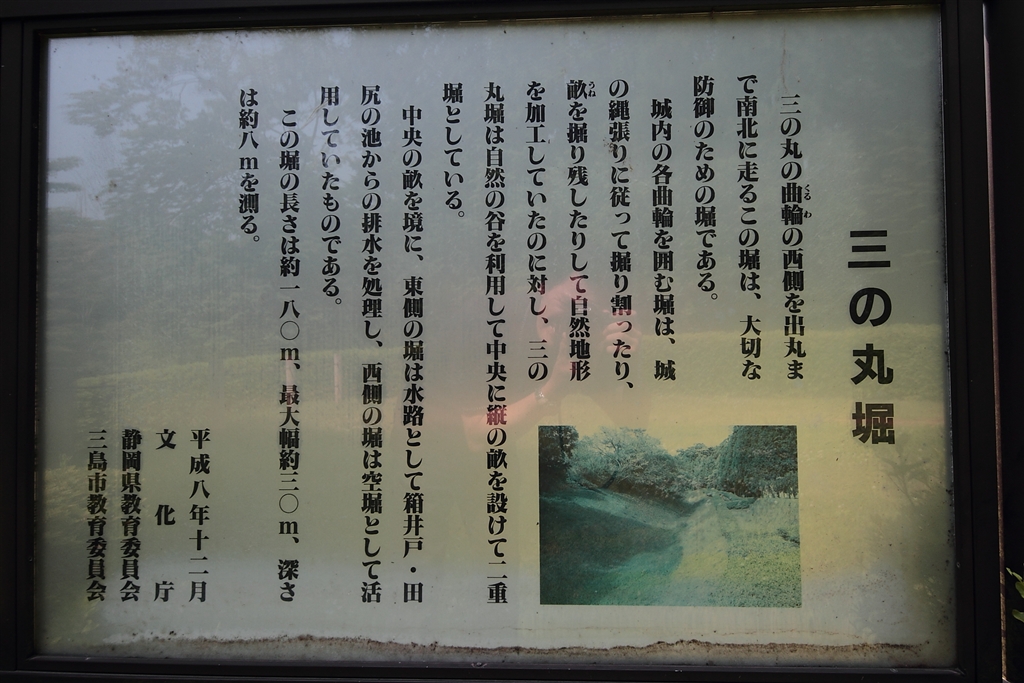 三の丸堀
三の丸の曲輪の西側を出丸ま
で南北に走るこの堀は、大切な
防御のための堀である。
城内の各曲輪を囲む堀は、城
の縄張りに従って掘り割ったり、
畝を掘り残したりして自然地形
を加工していたのに対し、三の
丸堀は自然の谷を利用して中央に縦の畝を設けて二重
堀としている。
中央の畝を境に、東側の堀は水路として箱井戸・田
尻の池からの排水を処理し、西側の堀は空堀として活
用していたものである。
この堀の長さは約一八〇m、最大幅約三〇m、深さ
は約八mを測る。
平成八年十二月
文化庁
静岡県教育委員会
三島市教育委員会